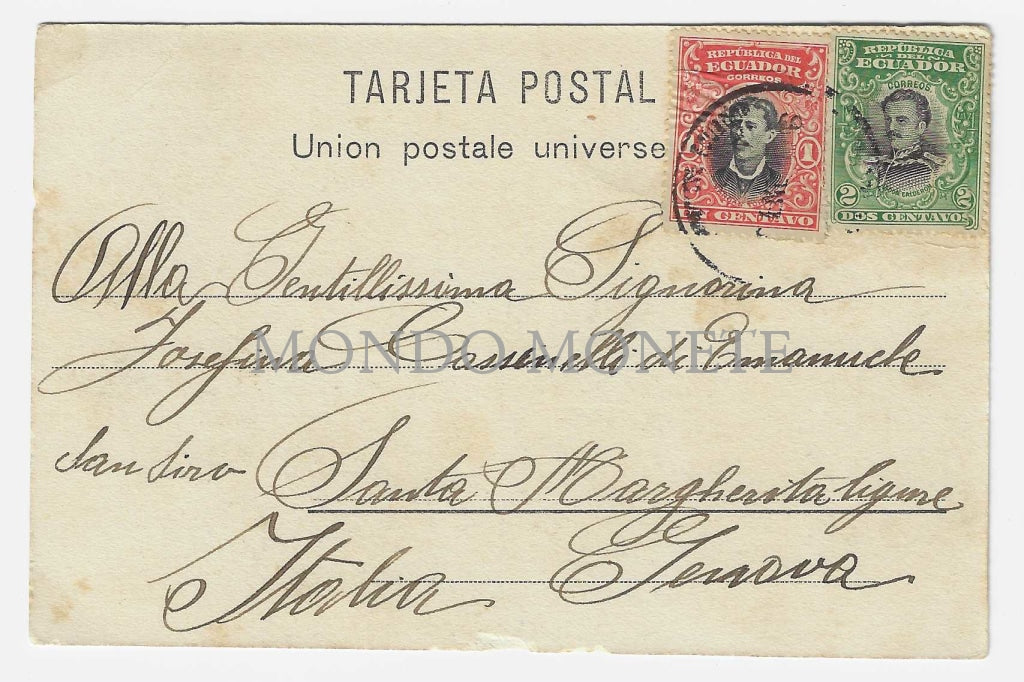 TARJETA POSTAL
Union postale universe
REPÚBLICA DEL
ECUADOR
CORREOS
1
UN CENTAVO
REPÚBLICA
DEL
ECUADOR
CORREOS
2 2
DOS CENTAVOS
Alla Gentillissima Signorina
Josefina Cassinelli di Emanuele
MONDO MONETE
San Siro Santa Margherita Ligure
Italia Genova